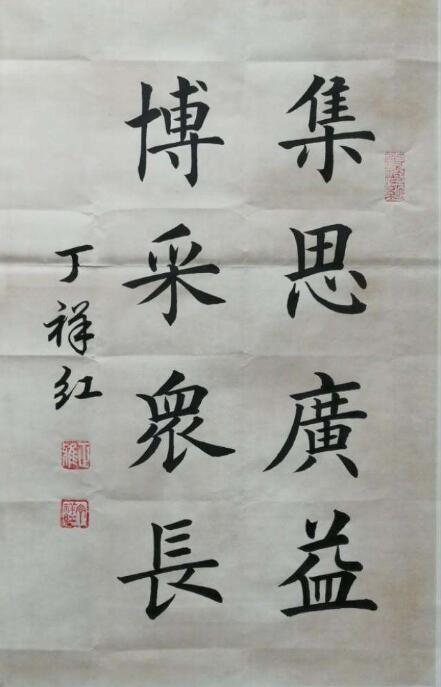 集思廣益
博采衆長
丁祥红